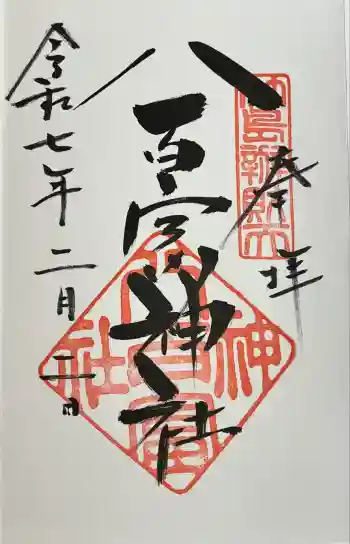 奉拝
竹島辨財天
八百富神社
八百富神社
令和七年二月二日